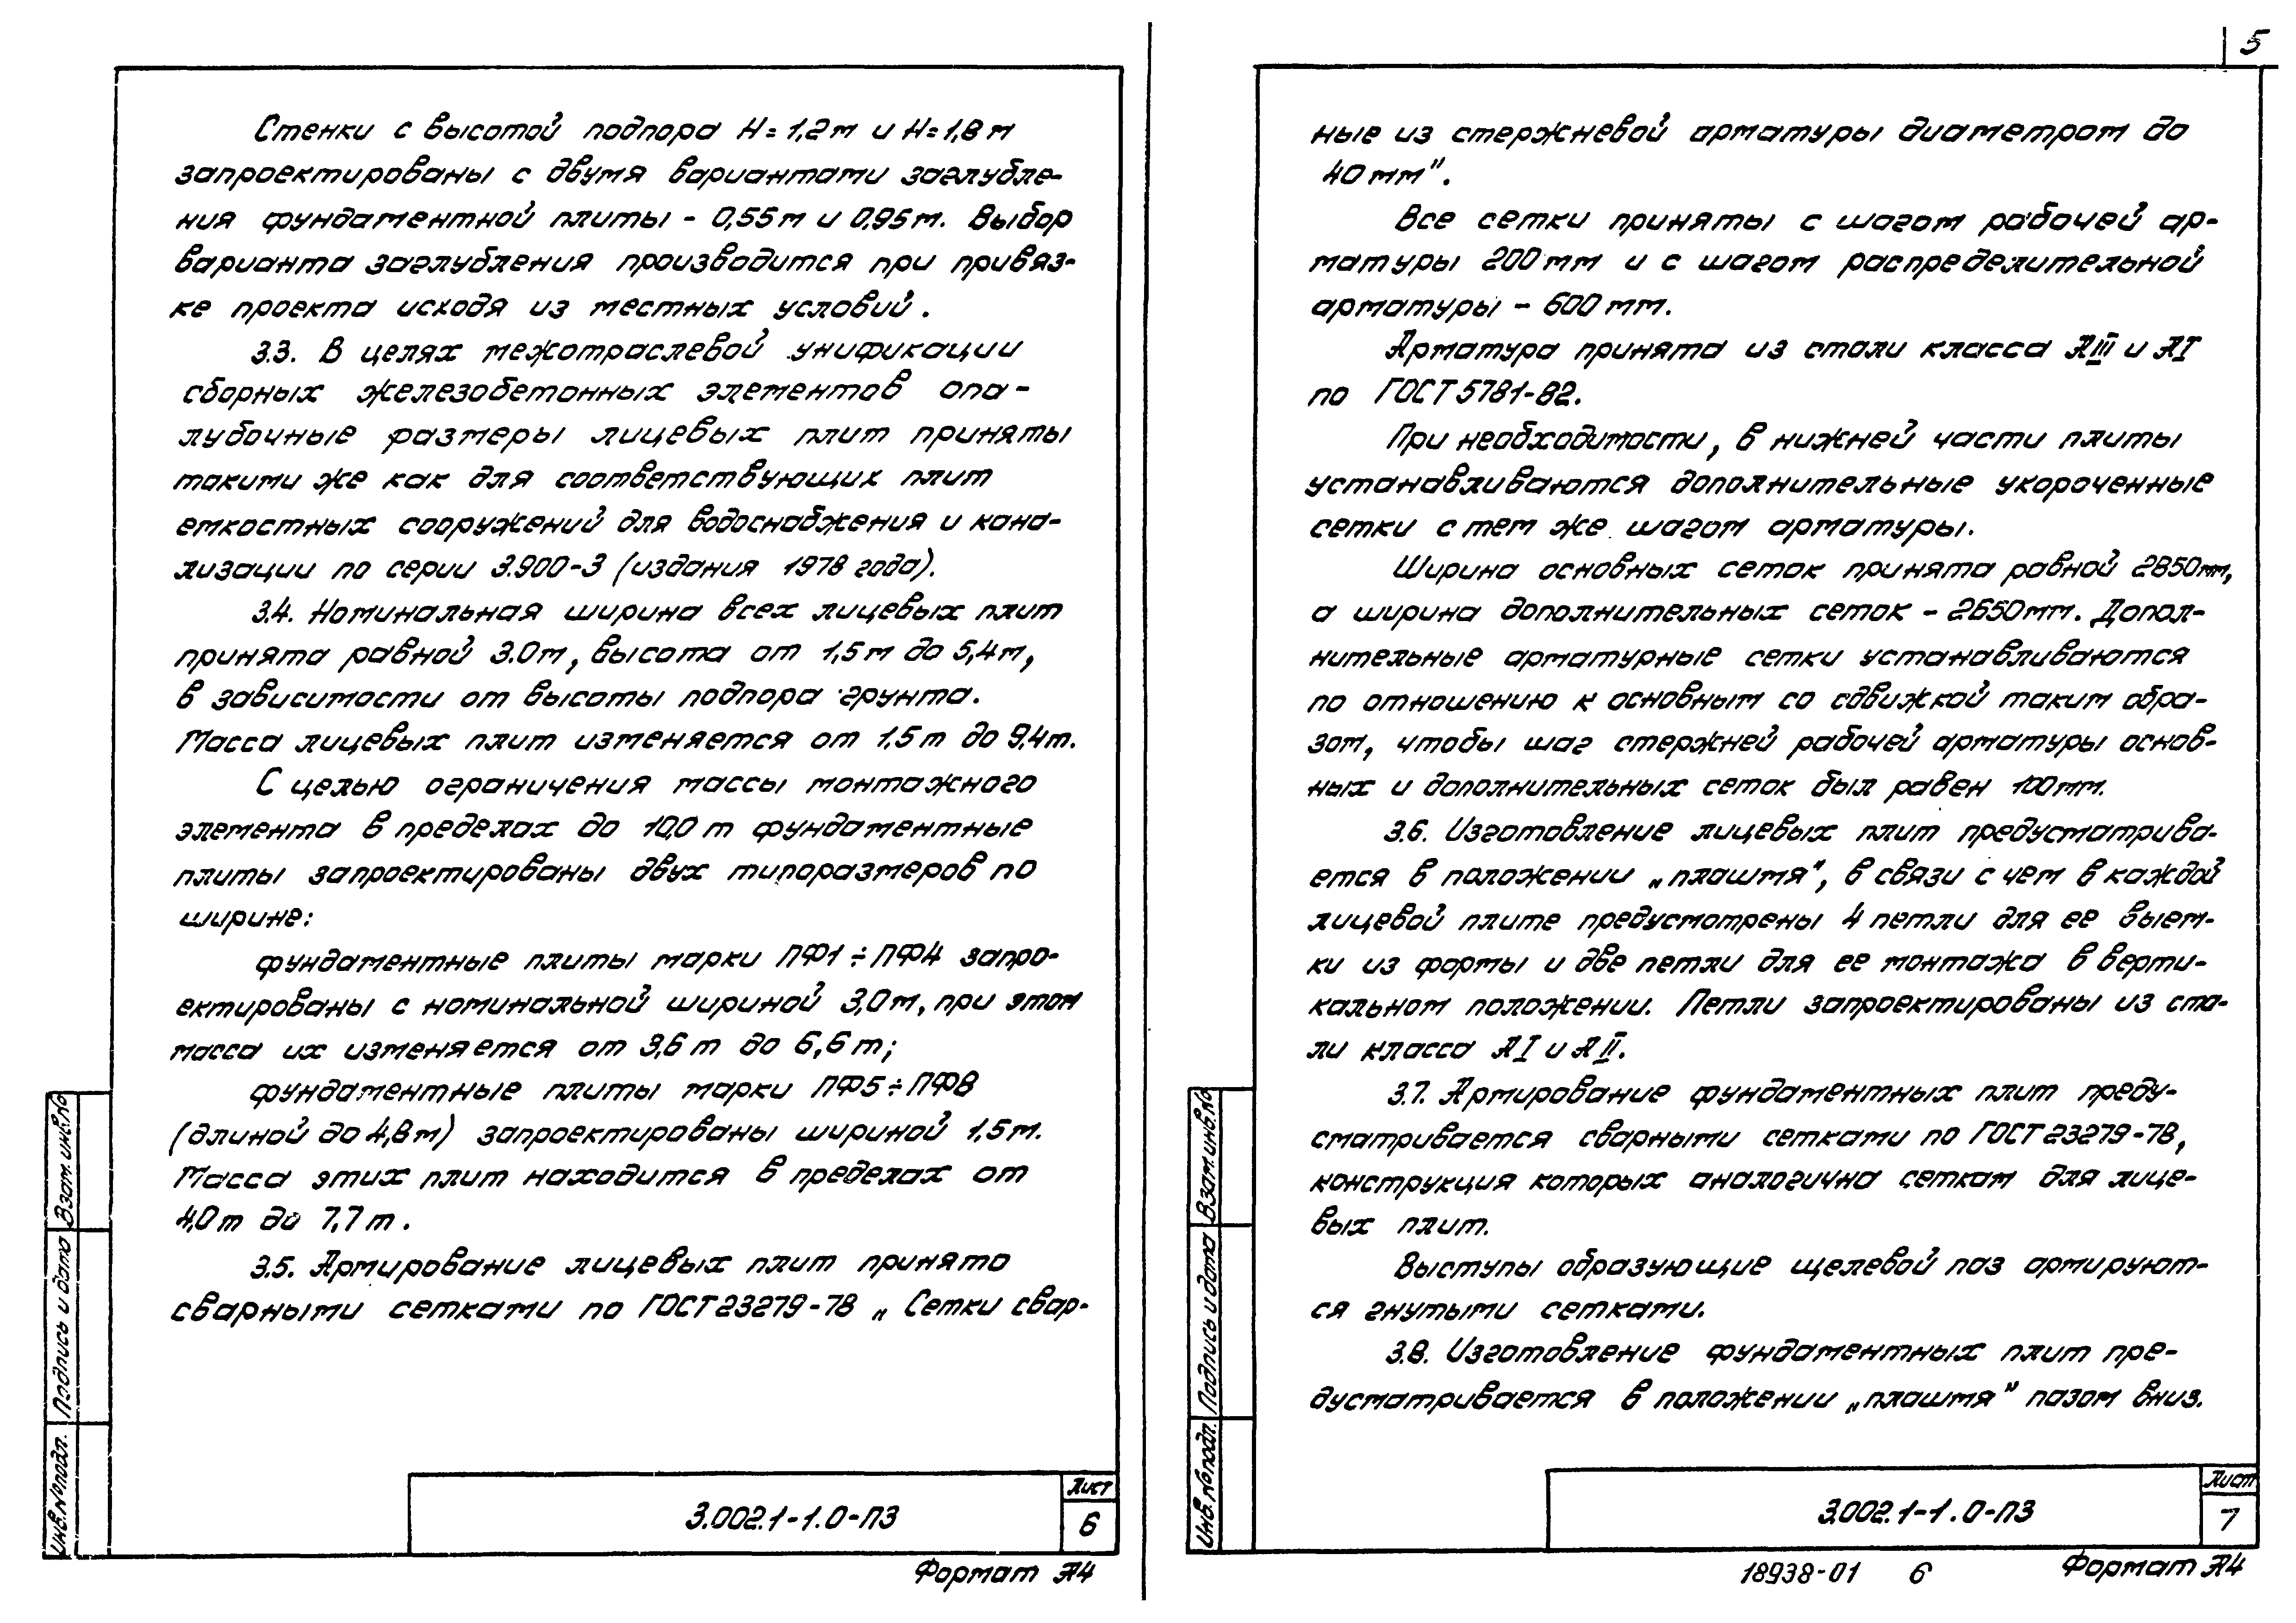 Стенки с высотой подпора Н=1,2м и Н=1,8м
запроектированы с двумя вариантами заглубле-
ния фундаментной плиты - 0,55м и 0,95м. Выбор
варианта заглубления производится при привяз-
ке проекта исходя из местных условий.
3.3. В целях межотраслевой унификации
сборных железобетонных элементов опа-
лубочные размеры лицевых плит приняты
такими же как для соответствующих плит
емкостных сооружений для водоснабжения и кана-
лизации по серии 3.900-3 (издания 1978 года).
3.4. Номинальная ширина всех лицевых плит
принята равной 3.0м, высота от 1,5м до 5,4м,
в зависимости от высоты подпора грунта.
Масса лицевых плит изменяется от 1,5т до 9,4т.
С целью ограничения массы монтажного
элемента в пределах до 10,0 т фундаментные
плиты запроектированы двух типоразмеров по
ширине:
фундаментные плиты марки ПФ1÷ПФ4 запро-
ектированы с номинальной шириной 3,0м, при этом
масса их изменяется от 3,6 т до 6,6 т;
фундаментные плиты марки ПФ5÷ПФ8
(длиной до 4,8м) запроектированы шириной 1,5м.
Масса этих плит находится в пределах от
4,0т до 7,7т.
3.5. Армирование лицевых плит принято
сварными сетками по ГОСТ 23279-78 „ Сетки свар-
Взам. инв.№
Подпись и дата
Инв.№подл.
3.002.1-1.0-ПЗ
Лист
6
Формат А4
5
ные из стержневой арматуры диаметром до
40мм".
Все сетки приняты с шагом рабочей ар-
матуры 200мм и с шагом распределительной
арматуры - 600мм.
Арматура принята из стали класса АIII и АI
по ГОСТ 5781-82.
При необходимости, в нижней части плиты
устанавливаются дополнительные укороченные
сетки с тем же шагом арматуры.
Ширина основных сеток принята равной 2850мм,
а ширина дополнительных сеток - 2650мм. Допол-
нительные арматурные сетки устанавливаются
по отношению к основным со сдвижкой таким обра-
зом, чтобы шаг стержней рабочей арматуры основ-
ных и дополнительных сеток был равен 100мм.
3.6. Изготовление лицевых плит предусматрива-
ется в положении „плашмя", в связи с чем в каждой
лицевой плите предусмотрены 4 петли для ее выем-
ки из формы и две петли для ее монтажа в верти-
кальном положении. Петли запроектированы из ста-
ли класса АI и АII.
3.7. Армирование фундаментных плит преду-
сматривается сварными сетками по ГОСТ 23279-78,
конструкция которых аналогична сеткам для лице-
вых плит.
Выступы образующие щелевой паз армируют-
ся гнутыми сетками.
3.8. Изготовление фундаментных плит пре-
дусматривается в положении „плашмя" пазом вниз.
Взам. инв.№
Подпись и дата
Инв.№подл.
3.002.1-1.0-ПЗ
Лист
7
18938-01 6
Формат А4